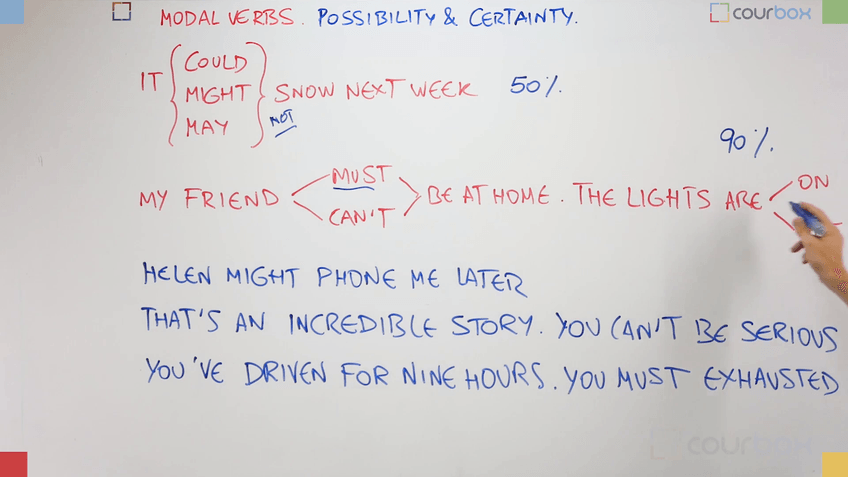 MODAL VERBS. POSSIBILITY & CERTAINTY.
courbox
COULD
IT MIGHT SNOW NEXT WEEK 50%.
MAY NOT
90%.
MUST ON
MY FRIEND BE AT HOME. THE LIGHTS ARE
CAN'T
HELEN MIGHT PHONE ME LATER
THAT'S AN INCREDIBLE STORY. YOU CAN'T BE SERIOUS
YOU'VE DRIVEN FOR NINE HOURS. YOU MUST EXHAUSTED
courbox